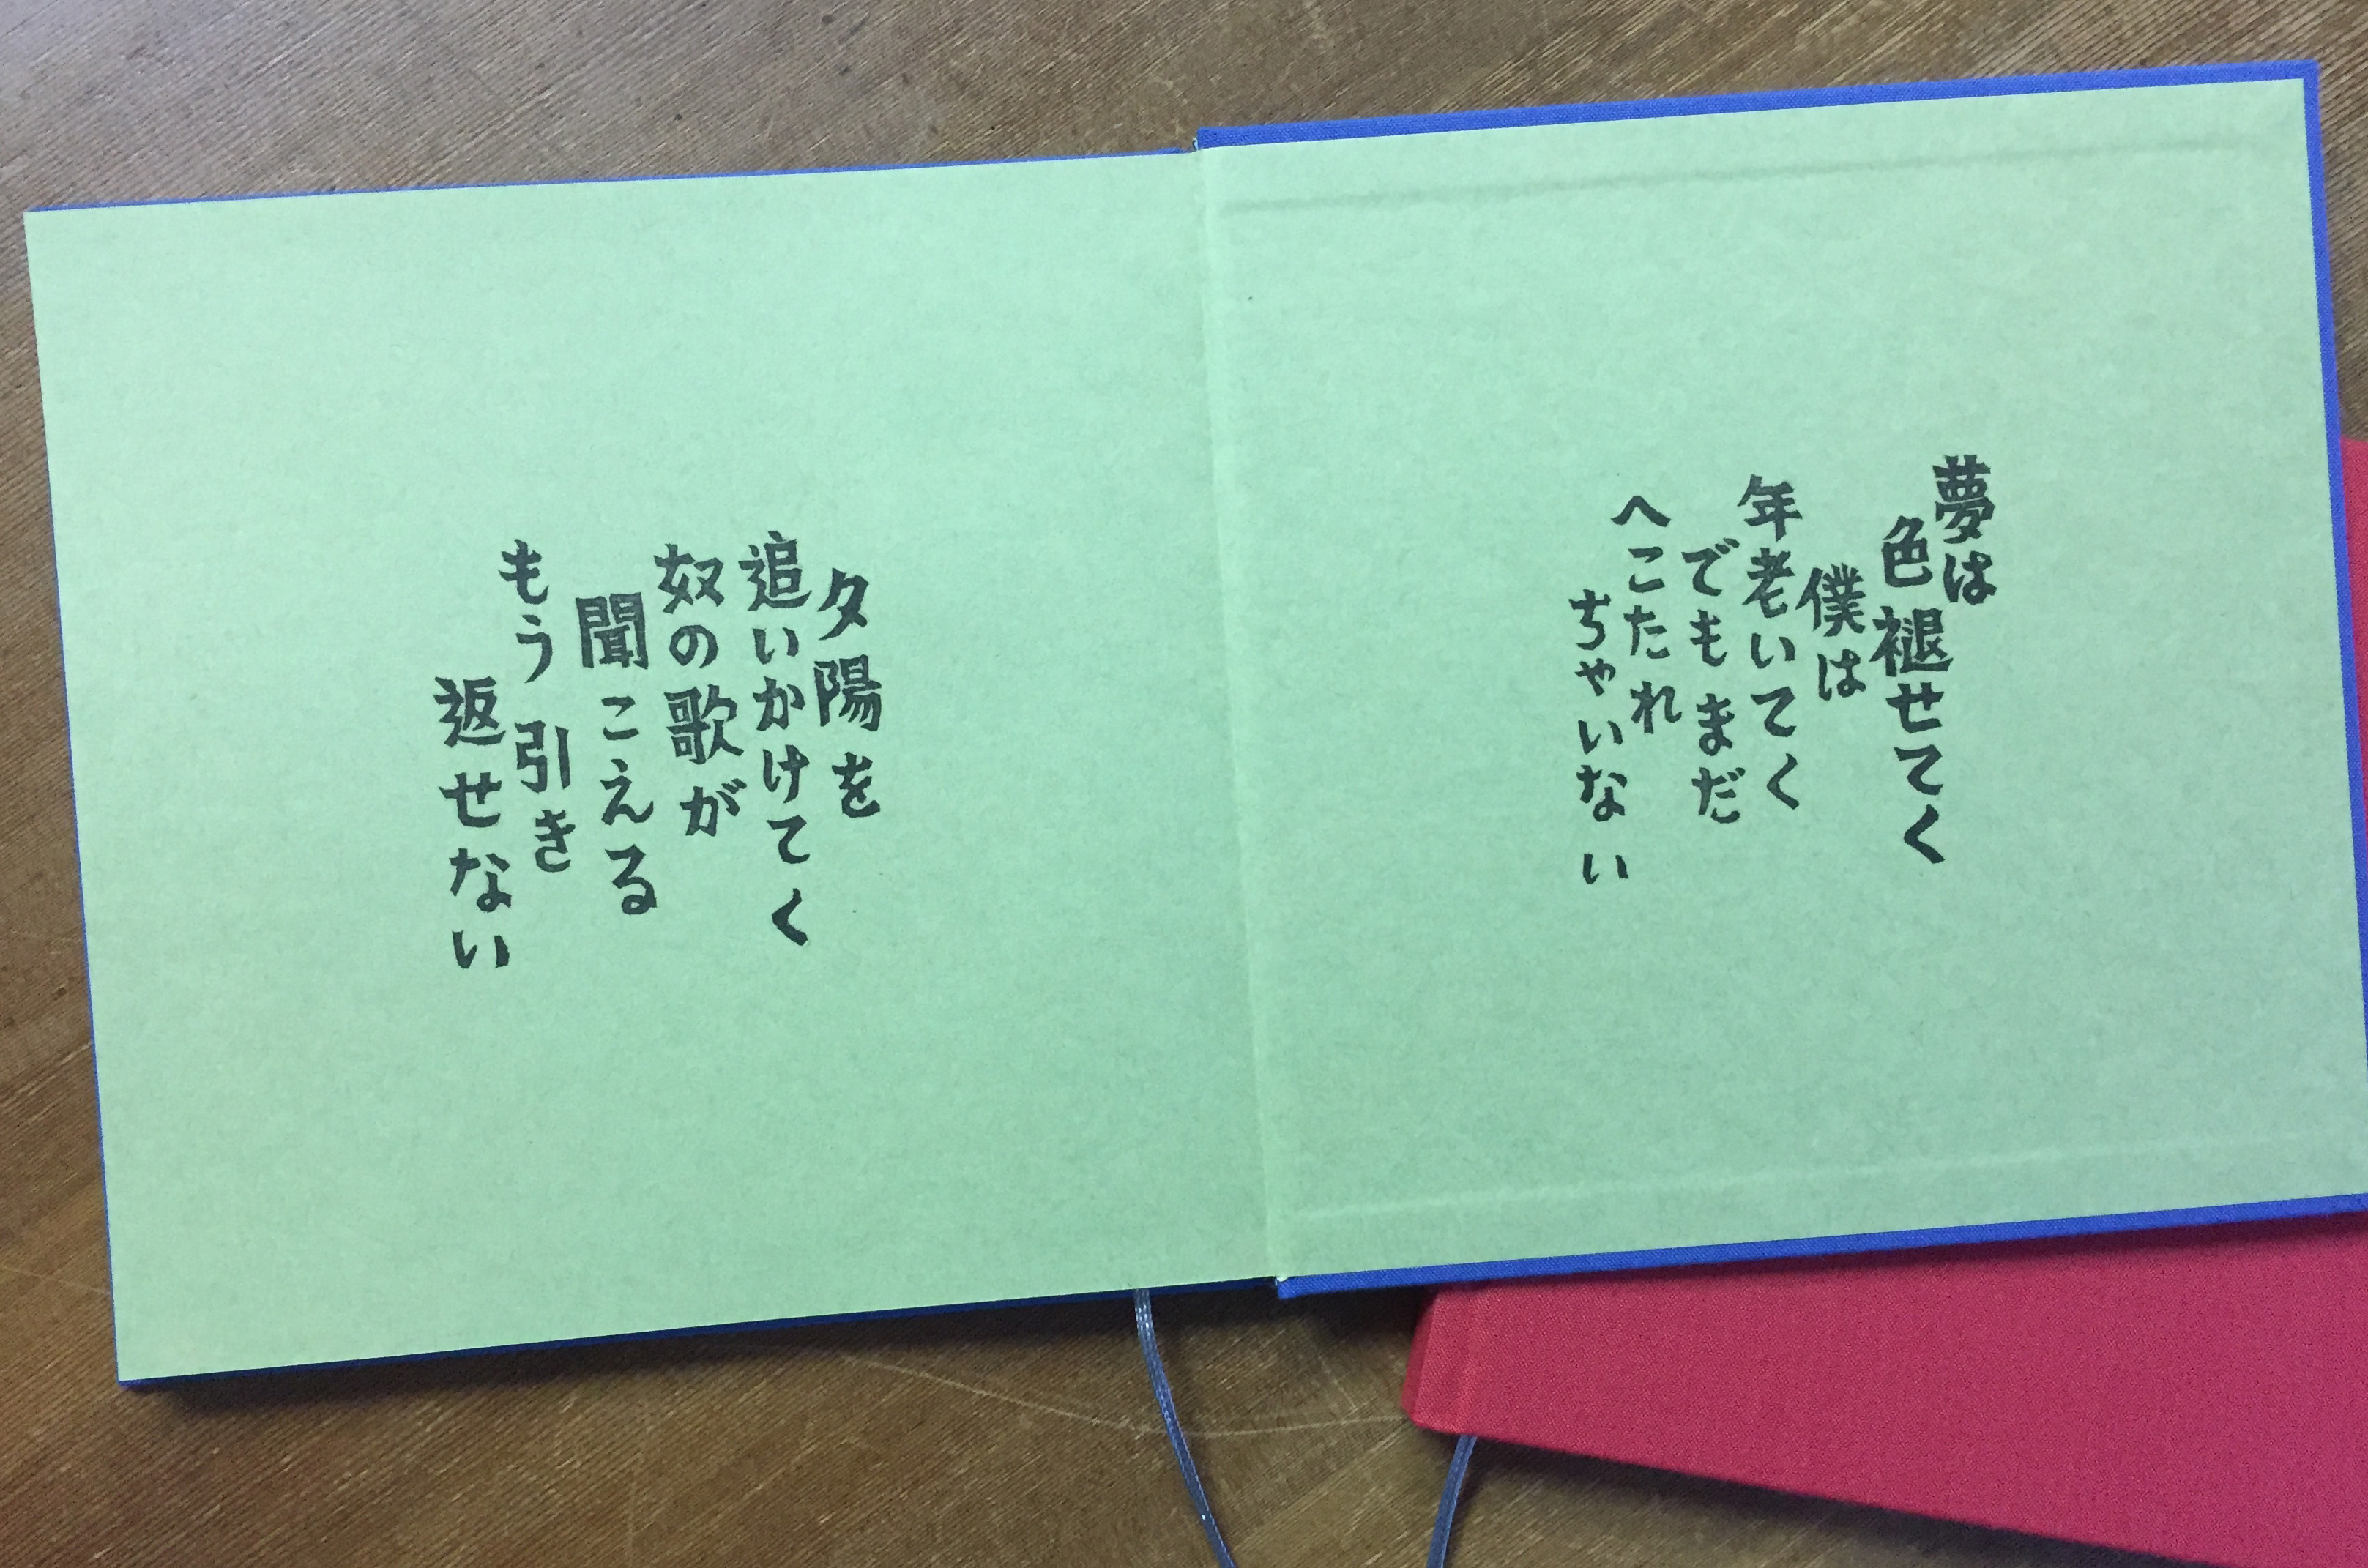 夢は
色褪せてく
僕は
年老いてく
でもまだ
へこたれ
ちゃいない
夕陽を
追いかけてく
奴の歌が
聞こえる
もう引き
返せない